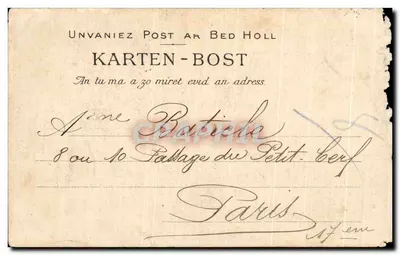 UNVANIEZ POST AR BED HOLL
KARTEN-BOST
An tu ma a zo miret evid an adress.
A ane Baticle
8 ou 10 Passage du Petit-Cerf
Paris
17 em